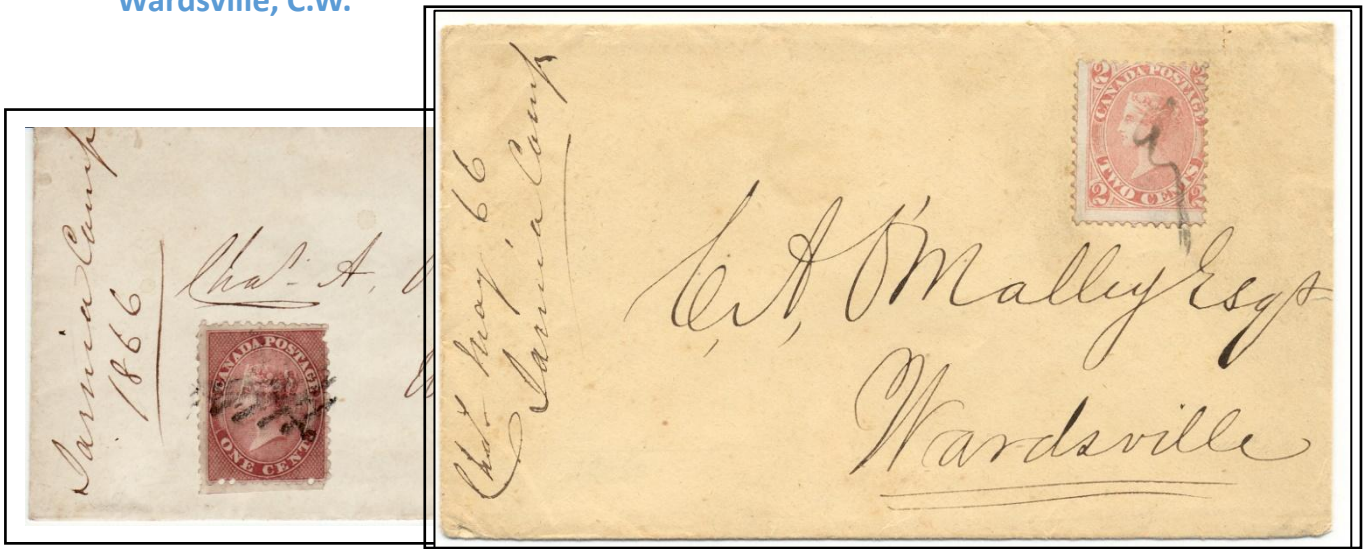 Wardsville, C.W.
Sarnia Camp
1866
Chas. A. O
CANADA POSTAGE
ONE CENT
Chat. May 66
Sarnia Camp
2 2
CANADA POSTAGE
TWO CENTS
2 2
C. A. O'Malley Esqr
Wardsville